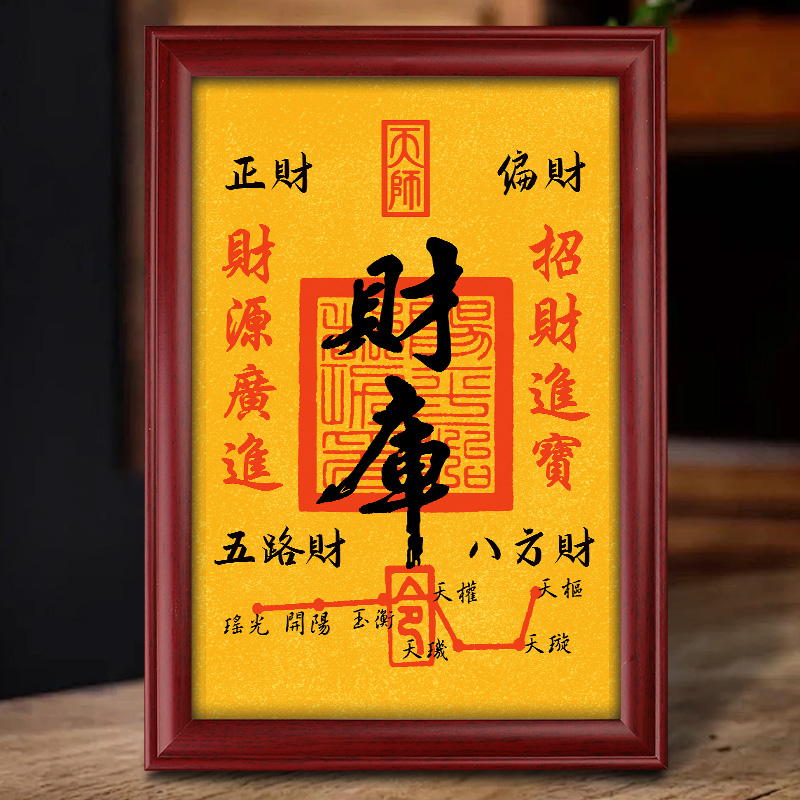 天師
正財
偏財
招財進寶
財源廣進
財庫
五路財
八方財
令
天樞
天璇
天璣
天權
玉衡
開陽
瑤光